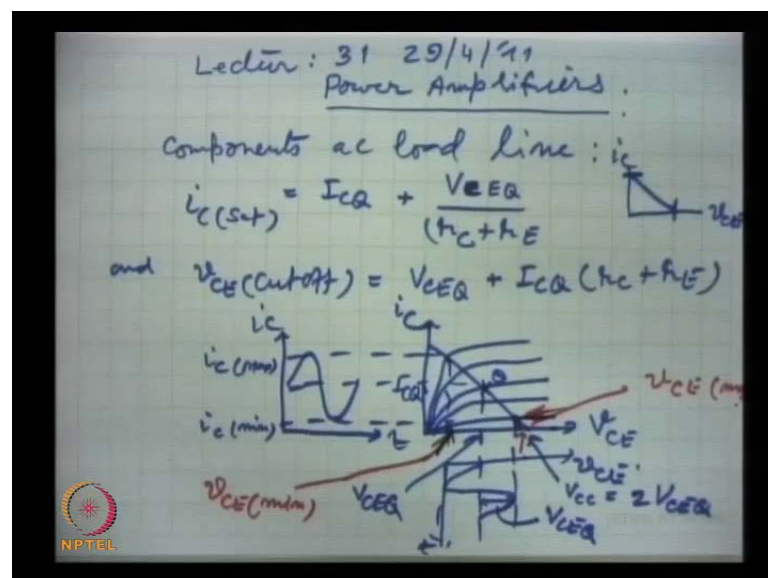 Lectur: 31 29/4/'11
Power Amplifiers.
Components ac load line:
iC
vCE
iC(sat) = ICQ + VCEQ
(rC + rE
and vCE(cutoff) = VCEQ + ICQ (rC + rE)
iC
iC
iC(max)
ICQ
Q
vCE (m
iC(min)
t
VCE
vCE(min)
VCEQ
vCE
VCC = 2 VCEQ
VCEQ
t
NPTEL